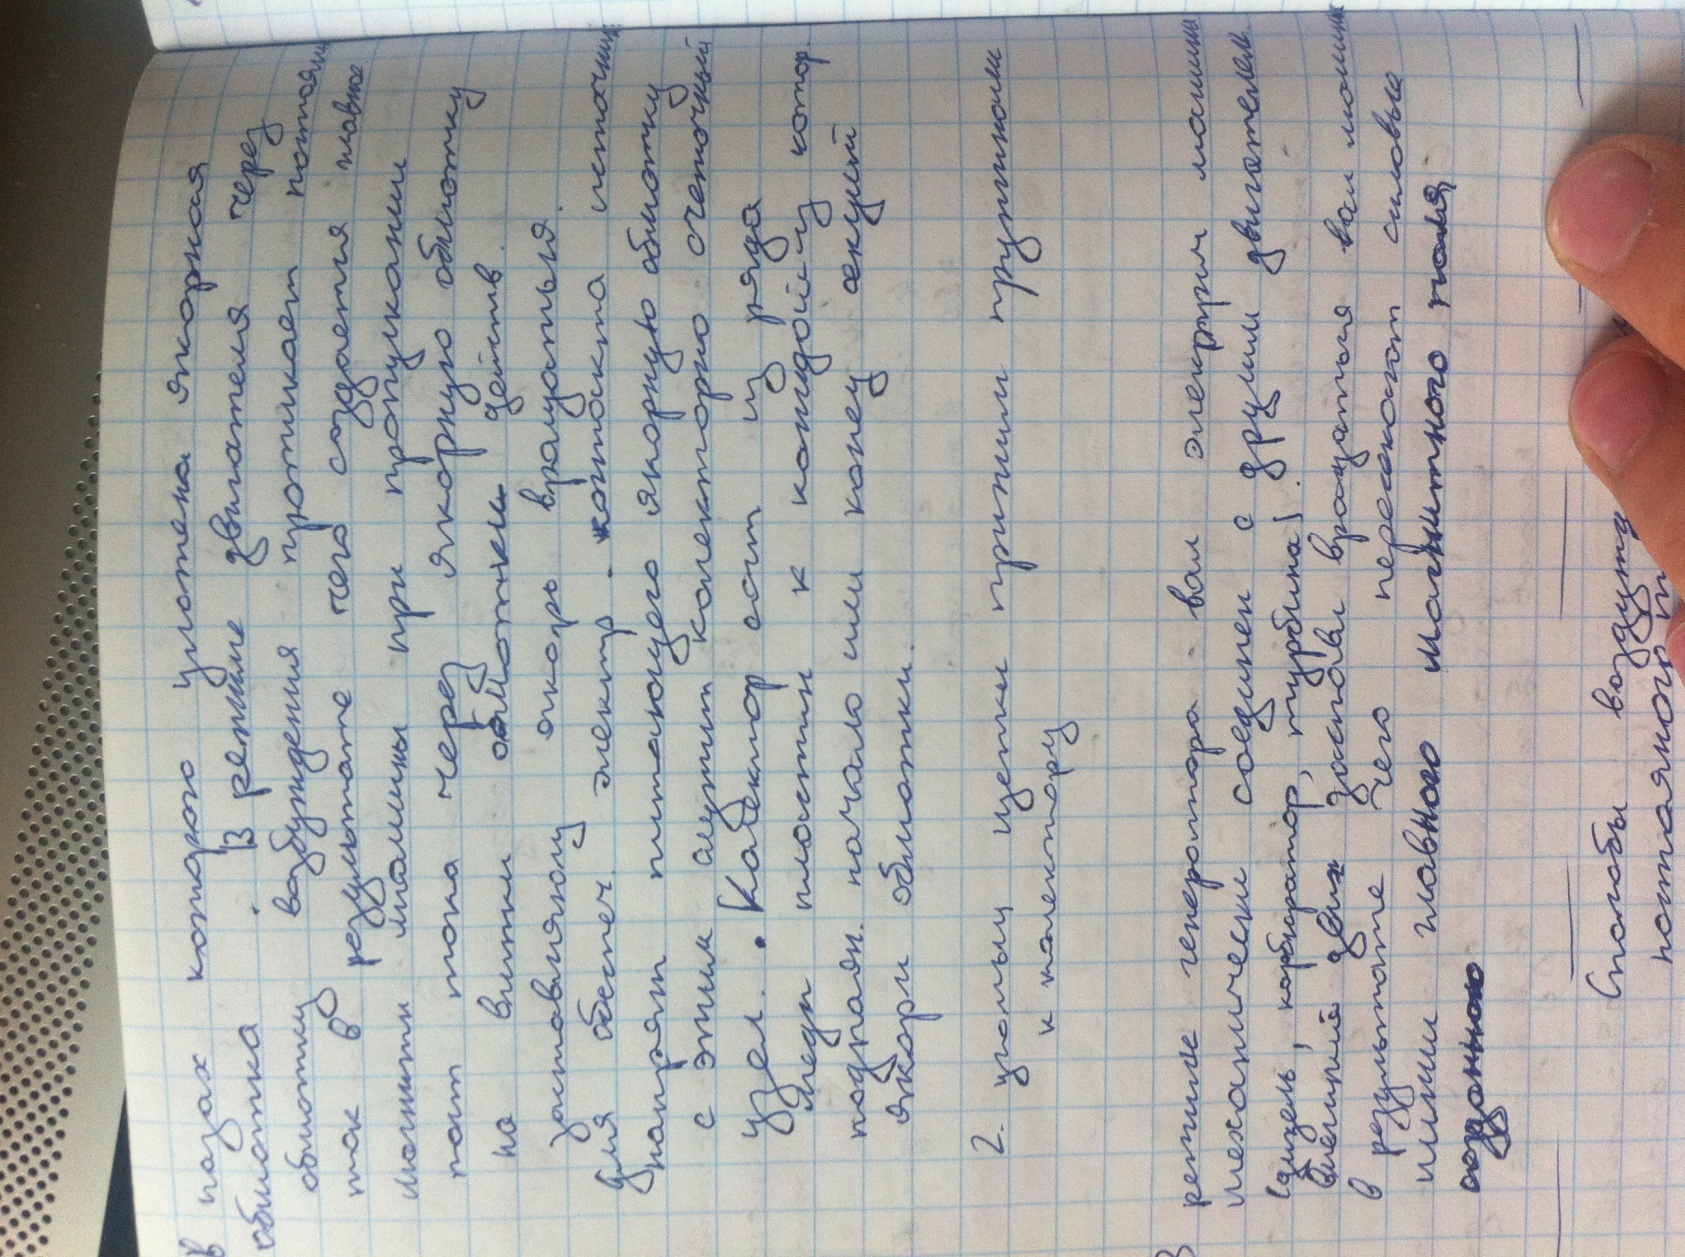 В пазах которого уложена якорная
обмотка. В режиме двигателя через
обмотку возбуждения протикает постоян
ток в результате чего создается главное
магнитн машины при пропускании
пост тока через якорную обмотку
на витки обмотки действ.
заставляющ якорь вращаться.
Для обеспеч. электр. контакта источник
напряж питающего якорную обмотку
с этим служит колекторно счеточный
узел. Коллектор сост из ряда
медн пластин к каждой из котор
подпаян. начало или конец секций
якори обмотки.
2. угольн щетки прижим пружинами
к колектору
В режиме генератора вал электрич машин
механически соединен с другим двигателем
(дизель, карбюратор, турбина).
внешний двиг заставл вращаться вал машин
в результате чего пересекают силовые
линии главного магнитного поля
Спасобы
постаяного